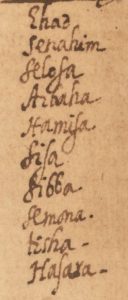 Ehad
senahim
selosa
Arbaha
Hamisa
sisa
sibba
semona.
tisha -
Hasara -